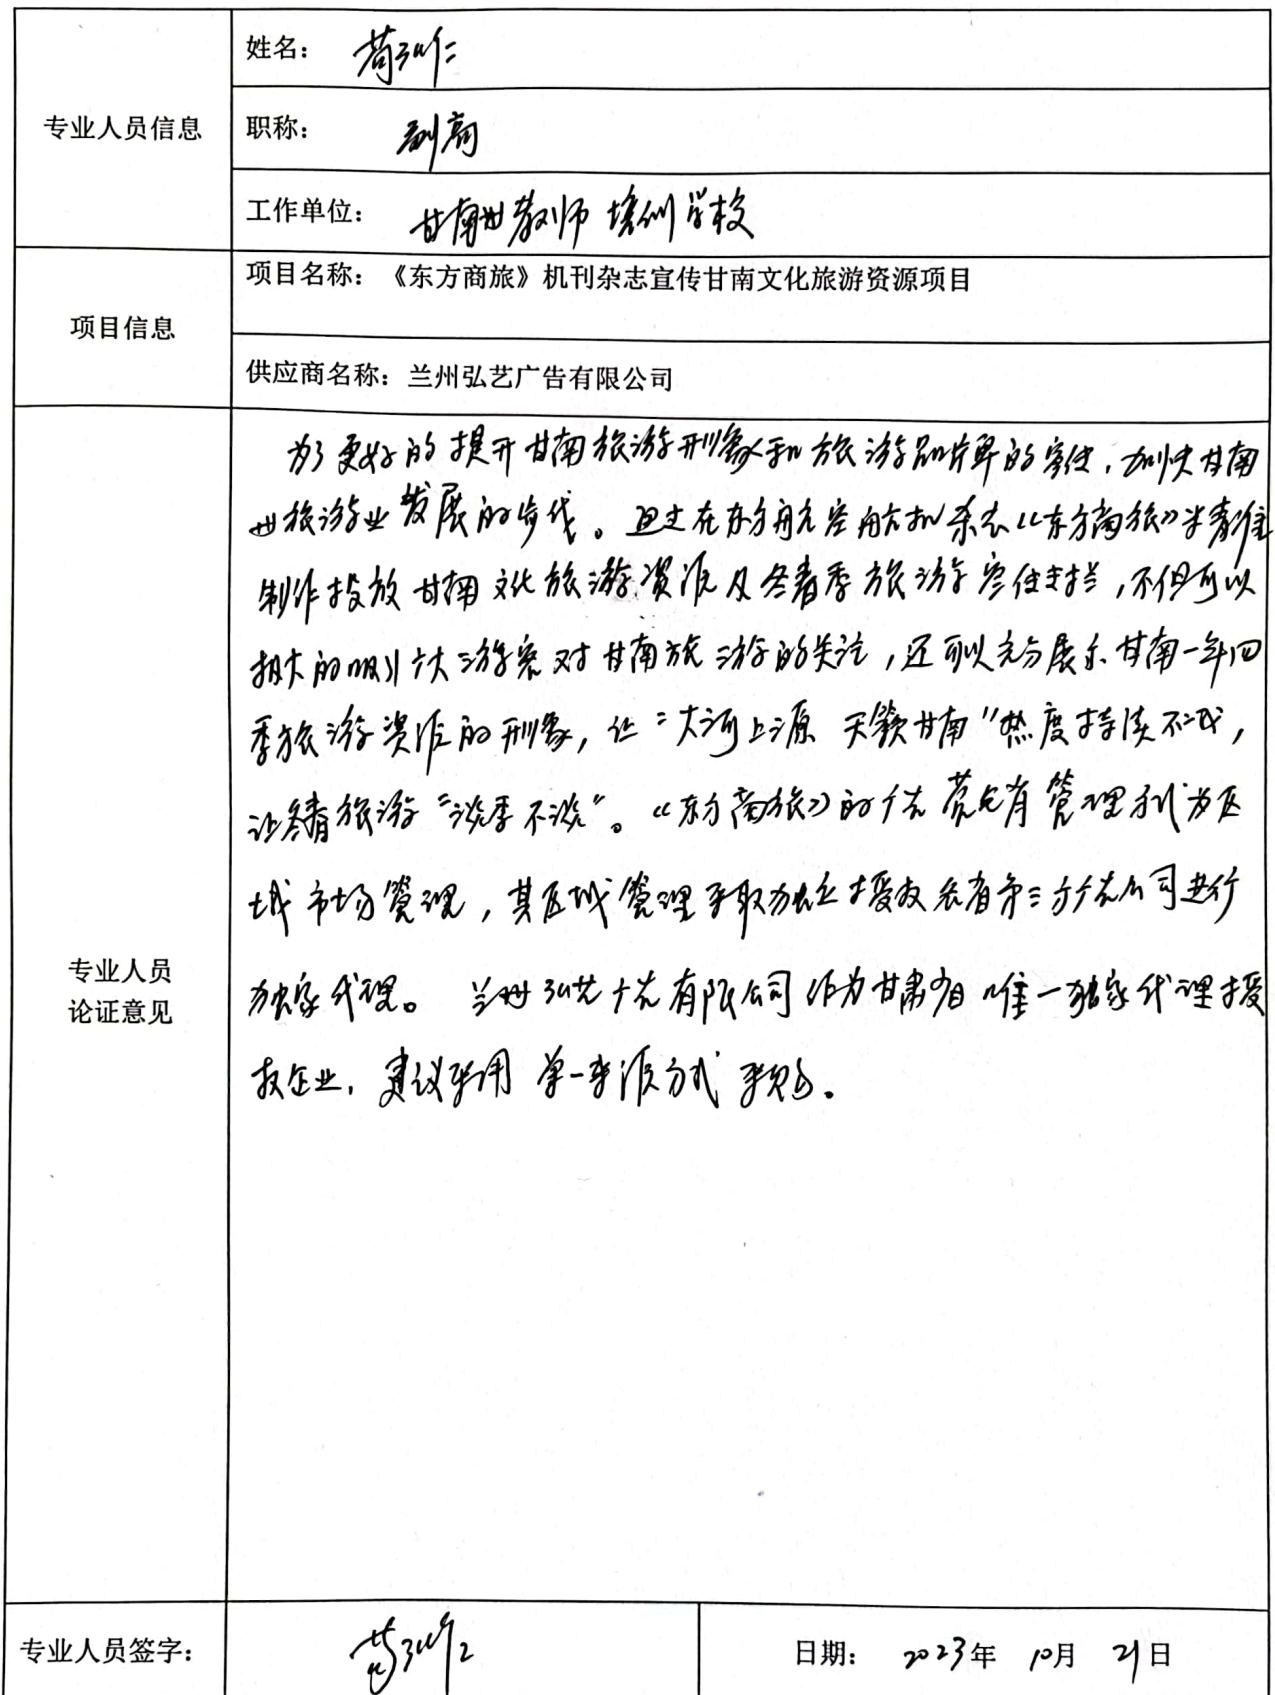 专业人员信息
姓名：苟弘仁
职称：副高
工作单位：甘南州教师培训学校
项目信息
项目名称：《东方商旅》机刊杂志宣传甘南文化旅游资源项目
供应商名称：兰州弘艺广告有限公司
专业人员
论证意见
为了更好的提升甘南旅游形象和旅游品牌的宣传，加快甘南
州旅游业发展的步伐。通过在东方航空航机杂志《东方商旅》
制作投放甘南文化旅游资源及冬春季旅游宣传，不但可以
极大的吸引广大游客对甘南旅游的关注，还可以充分展示甘南一年四
季旅游资源的形象，让“大河上源 天籁甘南”热度持续不减，
让冬春旅游“淡季不淡”。《东方商旅》的广告经营管理形式为区
域市场管理，其区域管理采取独立授权或者第三方广告公司进行
独家代理。兰州弘艺广告有限公司作为甘肃省唯一独家代理授
权企业，建议采用单一来源方式采购。
专业人员签字：苟弘仁
日期：2023年10月21日